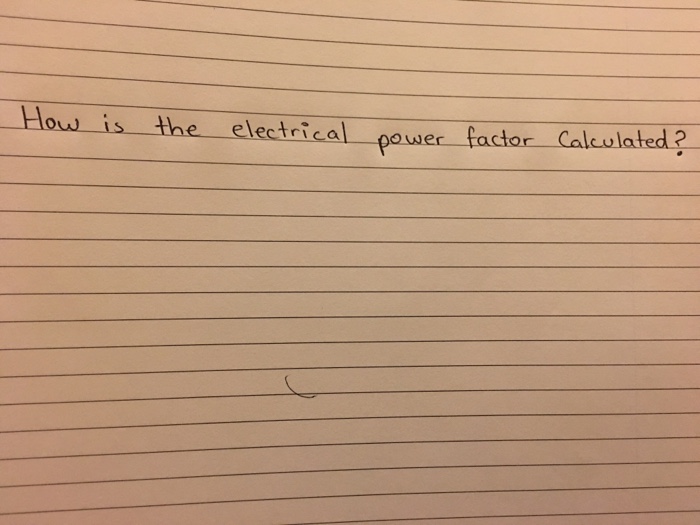 How is the electrical power factor Calculated?